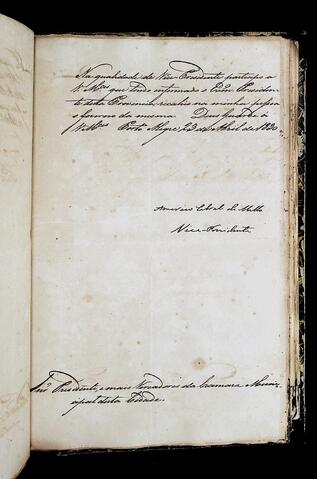 Na qualidade de Vice-Presidente participo a
V. Mces que tendo enfermado o Exmo Presiden-
te desta Provincia, recahio na minha pessoa
o governo da mesma. Deos Guarde a
V. Mces Porto Alegre, 23 de Abril de 1830
Americo Cabral de Mello
Vice-Presidente
Snr Presidente, e mais Vereadores da Camara Muni-
cipal desta Cidade.